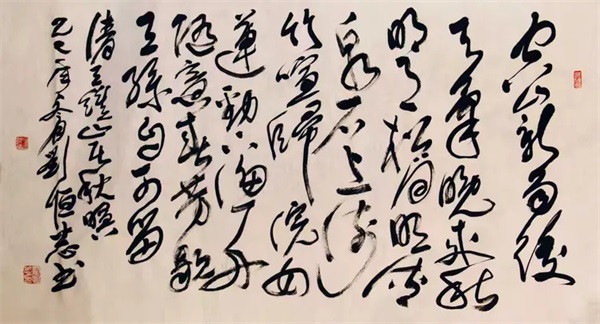 空山新雨後
天氣晚來秋
明月松間照清
泉石上流
竹喧歸浣女
蓮動下漁舟
隨意春芳歇
王孫自可留
王維山居秋暝
冬月劉恒志書